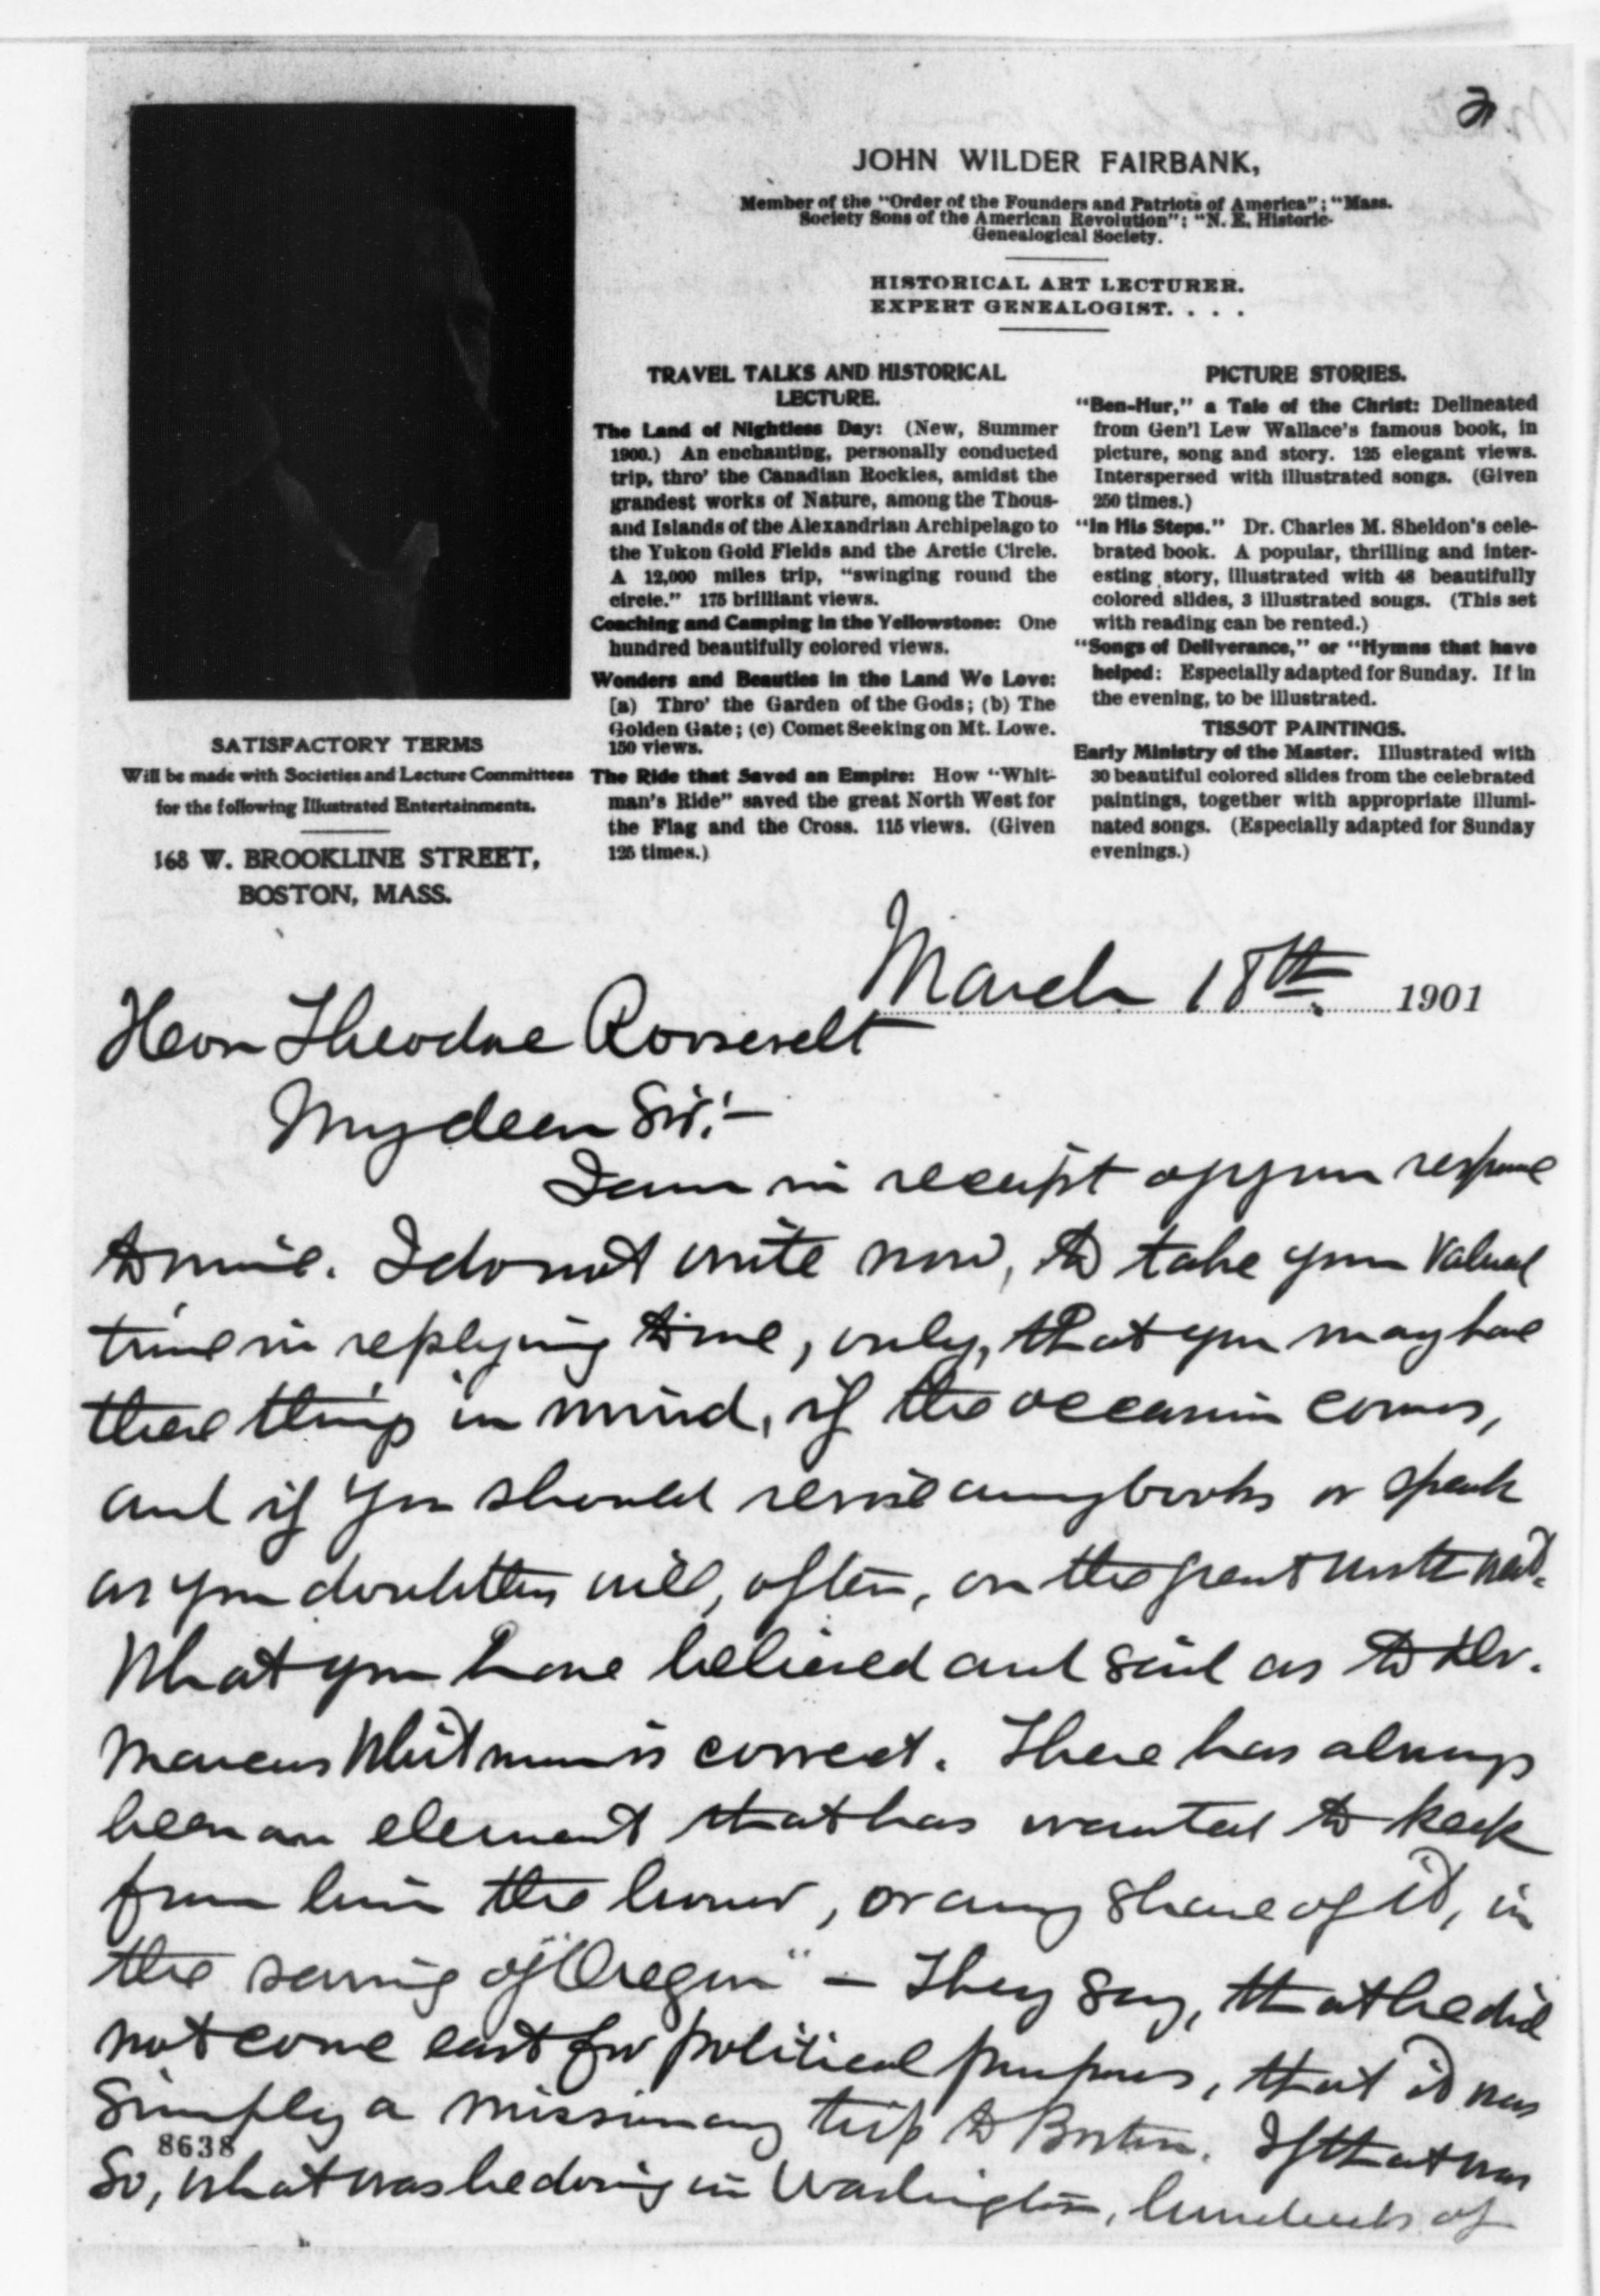 JOHN WILDER FAIRBANK,
Member of the "Order of the Founders and Patriots of America"; "Mass.
Society Sons of the American Revolution"; "N. E. Historic-
Genealogical Society.
HISTORICAL ART LECTURER.
EXPERT GENEALOGIST. . . .
SATISFACTORY TERMS
Will be made with Societies and Lecture Committees
for the following Illustrated Entertainments.
168 W. BROOKLINE STREET,
BOSTON, MASS.
TRAVEL TALKS AND HISTORICAL
LECTURE.
The Land of Nightless Day: (New, Summer
1900.) An enchanting, personally conducted
trip, thro' the Canadian Rockies, amidst the
grandest works of Nature, among the Thous-
and Islands of the Alexandrian Archipelago to
the Yukon Gold Fields and the Arctic Circle.
A 12,000 miles trip, "swinging round the
circle." 175 brilliant views.
Coaching and Camping in the Yellowstone: One
hundred beautifully colored views.
Wonders and Beauties in the Land We Love:
(a) Thro' the Garden of the Gods; (b) The
Golden Gate; (c) Comet Seeking on Mt. Lowe.
150 views.
The Ride that Saved an Empire: How "Whit-
man's Ride" saved the great North West for
the Flag and the Cross. 115 views. (Given
125 times.)
PICTURE STORIES.
"Ben-Hur," a Tale of the Christ: Delineated
from Gen'l Lew Wallace's famous book, in
picture, song and story. 125 elegant views.
Interspersed with illustrated songs. (Given
250 times.)
"In His Steps." Dr. Charles M. Sheldon's cele-
brated book. A popular, thrilling and inter-
esting story, illustrated with 48 beautifully
colored slides, 3 illustrated songs. (This set
with reading can be rented.)
"Songs of Deliverance," or "Hymns that have
helped: Especially adapted for Sunday. If in
the evening, to be illustrated.
TISSOT PAINTINGS.
Early Ministry of the Master. Illustrated with
30 beautiful colored slides from the celebrated
paintings, together with appropriate illumi-
nated songs. (Especially adapted for Sunday
evenings.)
March 18th. 1901
Hon Theodore Roosevelt
My dear Sir:-
I am in receipt of your response
to mine. I do not write now, to take your valued
time in replying to me, only, that you may have
these things in mind, if the occasion comes,
and if you should revise any books or speak
as you doubtless will, often, on the great North West.
What you have believed and said as to Dr.
Marcus Whitman is correct. There has always
been an element that has wanted to keep
from him the honor, or any share of it, in
the saving of "Oregon" - They say, that he did
not come east for political purposes, that it was
simply a missionary trip to Boston. If that was
8638
so, what was he doing in Washington, hundreds of